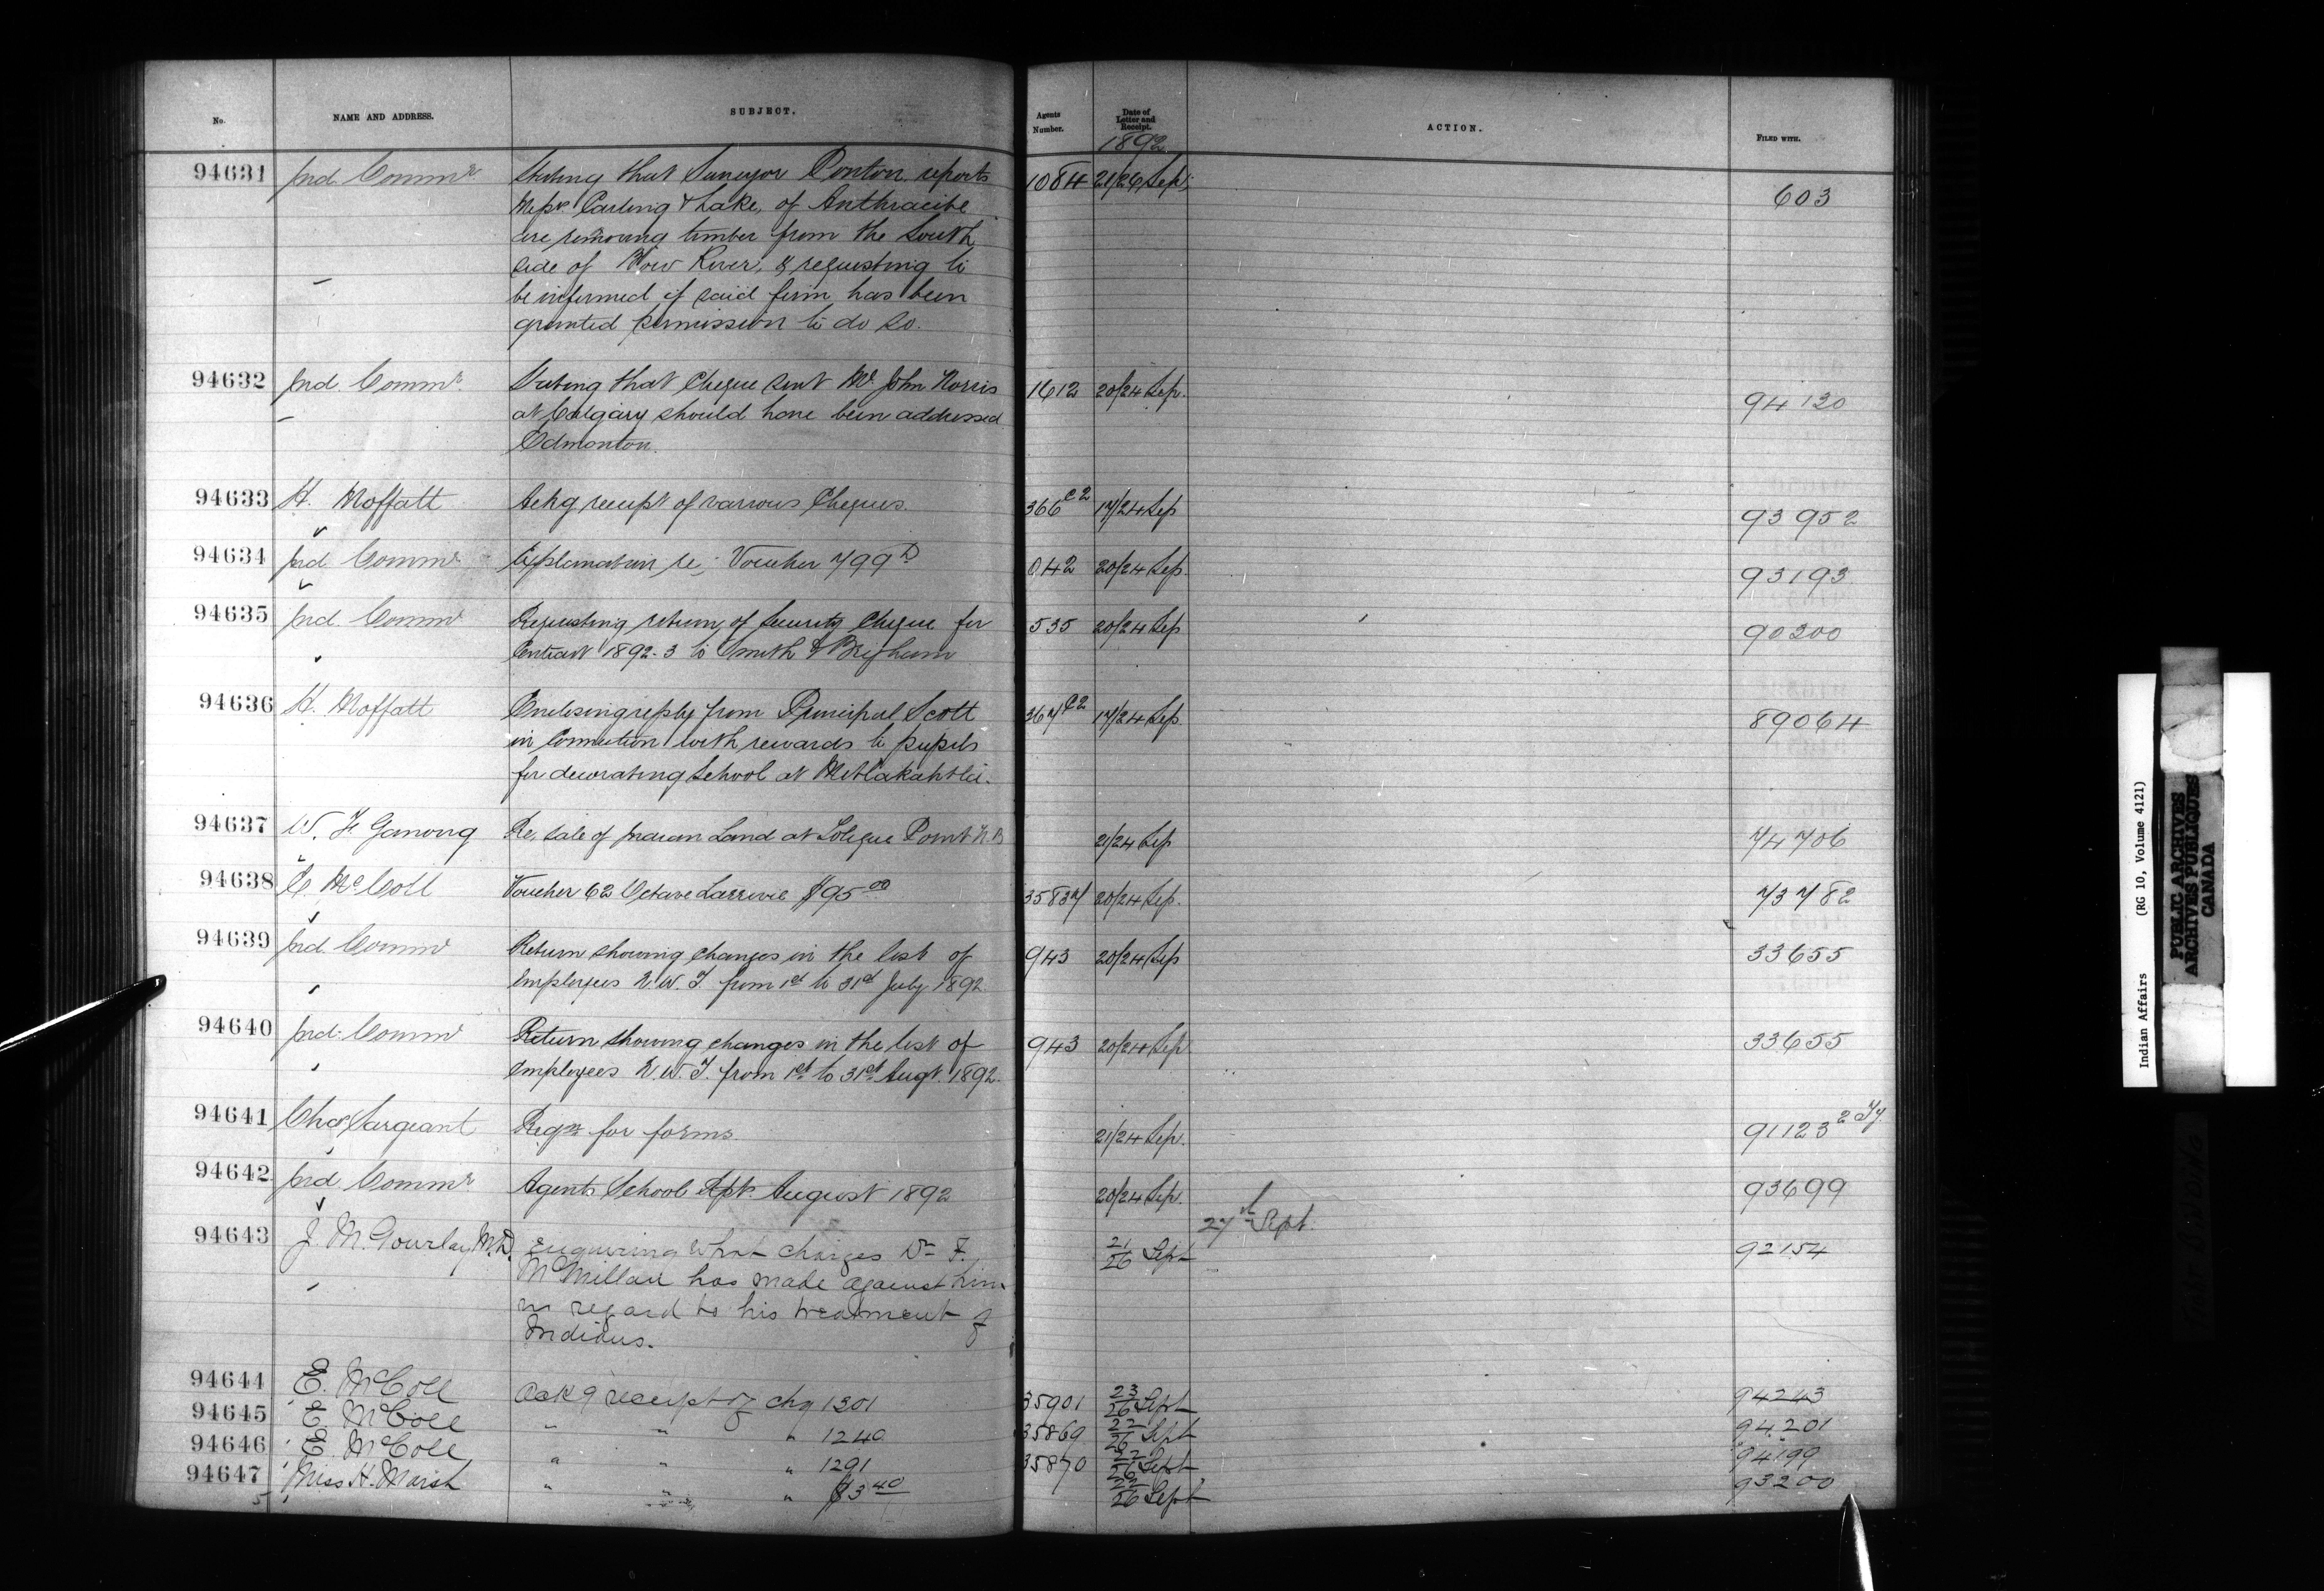 No. NAME AND ADDRESS. SUBJECT. Agents Number. Date of Letter and Receipt. ACTION. FILED WITH.
1892
94631 Ind. Commr Stating that Surveyor Ponton reports 1084 21/26 Sep. 603
Messrs Carling & Lake, of Anthracite
are removing timber from the South
side of Bow River, & requesting to
be informed if said firm has been
granted permission to do so.
94632 Ind. Commr. Stating that Cheque sent Mr. John Norris 1612 20/24 Sep. 94120
at Calgary should have been addressed
Edmonton.
94633 H. Moffatt Ackg receipt of various Cheques. 366 C2 17/24 Sep 93952
94634 Ind. Commr. Explanation re; Voucher 799 D 042 20/24 Sep. 93193
94635 Ind. Commr Requesting return of Security Cheque for 535 20/24 Sep 90200
Contract 1892-3 to Smith & Brigham
94636 H. Moffatt Enclosing reply from Principal Scott 367 C2 17/24 Sep. 89064
in Connection with rewards to pupils
for decorating School at Metlakahtla.
94637 W. F. Ganong Re, sale of Indian Land at Point N.B 21/24 Sep 74706
94638 E. McColl Voucher 62 Octave Larrivie $95.00 35837 20/24 Sep. 73782
94639 Ind. Commr Return showing changes in the list of 943 20/24 Sep 33655
Employees N.W.T. from 1st to 31st July 1892
94640 Ind. Commr Return showing changes in the list of 943 20/24 Sep 33655
Employees N.W.T. from 1st to 31st Augt. 1892.
94641 Chas Sargeant Reqn for forms. 21/24 Sep. 91123 2
94642 Ind. Commr. Agents School Rept. August 1892 20/24 Sep. 93699
27th Sept.
94643 J. M. Gourlay M.D. Enquiring what charges Dr F. 21/26 Sept 92154
McMillan has made against him
in regard to his treatment of
Indians.
94644 E. McColl Ackg receipt of chq 1301 35901 23/26 Sept 94243
94645 E. McColl " " " 1240 35869 22/26 Sept 94201
94646 E. McColl " " " 1291 35870 22/26 Sept 94199
94647 Miss H. Marsh " " " $3.40 22/26 Sept 93200
Indian Affairs (RG 10, Volume 4121)
PUBLIC ARCHIVES
ARCHIVES PUBLIQUES
CANADA